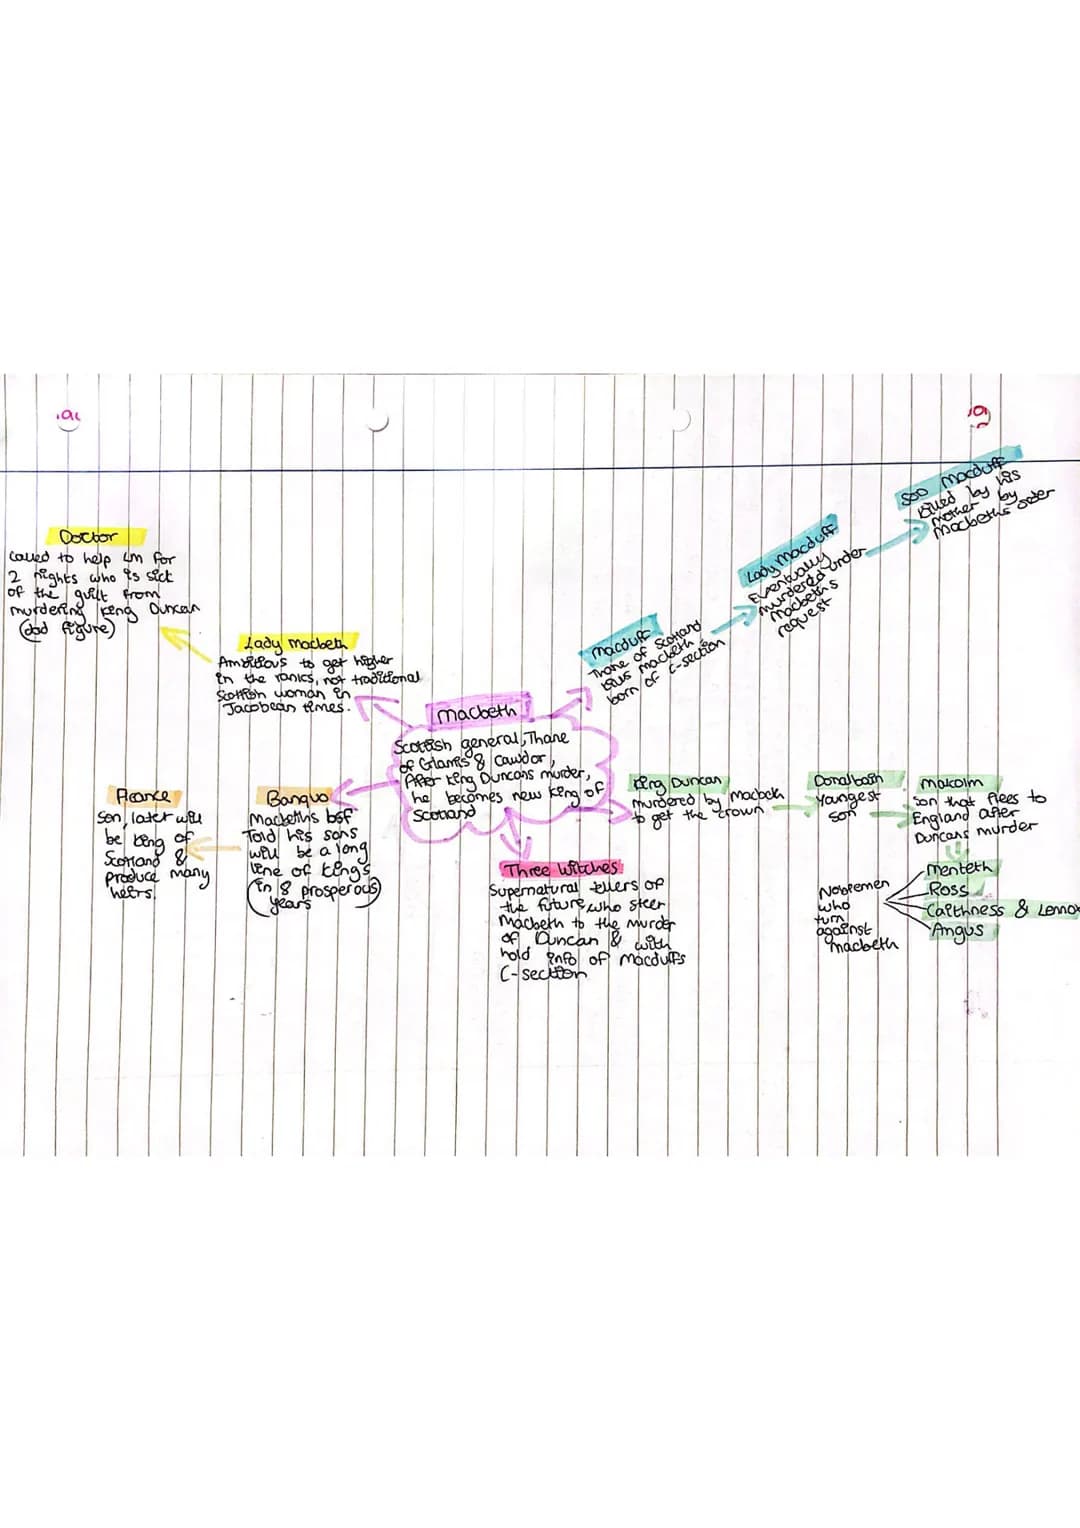 Doctor
Called to help LM for
2 nights who is sick
of the guilt from
murdering King Duncan
(dad figure)
Lady Macbeth
Ambitious to get higher
in the ranks, not traditional
Scottish woman in
Jacobean times.
Macbeth
Scottish general, Thane
of Glamis & Cawdor,
After King Duncans murder,
he becomes new king of
Scotland
Macduff
Thane of Scotland
kills macbeth
born of C-section
Lady Macduff
Eventually
murdered under
Macbeth's
request
son Macduff
killed by his
mother by
Macbeths order
Fleance
Son, later will
be king of
Scotland &
produce many
heirs.
Banquo
Macbeth's bsf
Told his sons
will be a long
line of kings
(in 8 prosperous
years)
Three Witches
Supernatural tellers of
the future, who steer
Macbeth to the murder
of Duncan & with
hold info of Macduffs
C-section
King Duncan
murdered by Macbeth
to get the crown
Donalbain
Youngest
son
Malcolm
Son that flees to
England after
Duncans murder
Noblemen
who
turn
against
Macbeth
Menteth
Ross
Caithness & Lennox
Angus